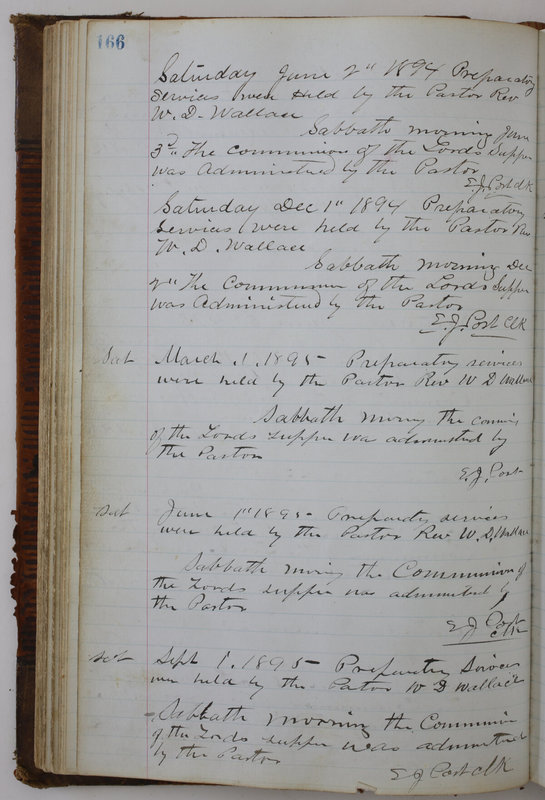 166
Saturday June 2nd 1894 Preparatory
Services were held by the Pastor Rev
W. D. Wallace
Sabbath morning June
3rd The communion of the Lords Supper
was Administered by the Pastor
E. J. Post clk
Saturday Dec 1st 1894 Preparatory
Services were held by the Pastor Rev
W. D. Wallace
Sabbath morning Dec
2nd The Communion of the Lords Supper
was Administered by the Pastor
E. J. Post Clk
Sat March 1. 1895 Preparatory services
were held by the Pastor Rev W D Wallace
Sabbath morning the
of the Lords supper was administed by
the Pastor
E. J. Post
Sat June 1st 1895 Preparatory services
were held by the Pastor Rev W. D. Wallace
Sabbath morning the Communion of
the Lords supper was administed by
the Pastor
E J Post
clk
Sat Sept 1. 1895 Preparatory Services
were held by the Pastor W D Wallace
Sabbath morning the Communion
of the Lords supper was administered
by the Pastor
E J Post clk